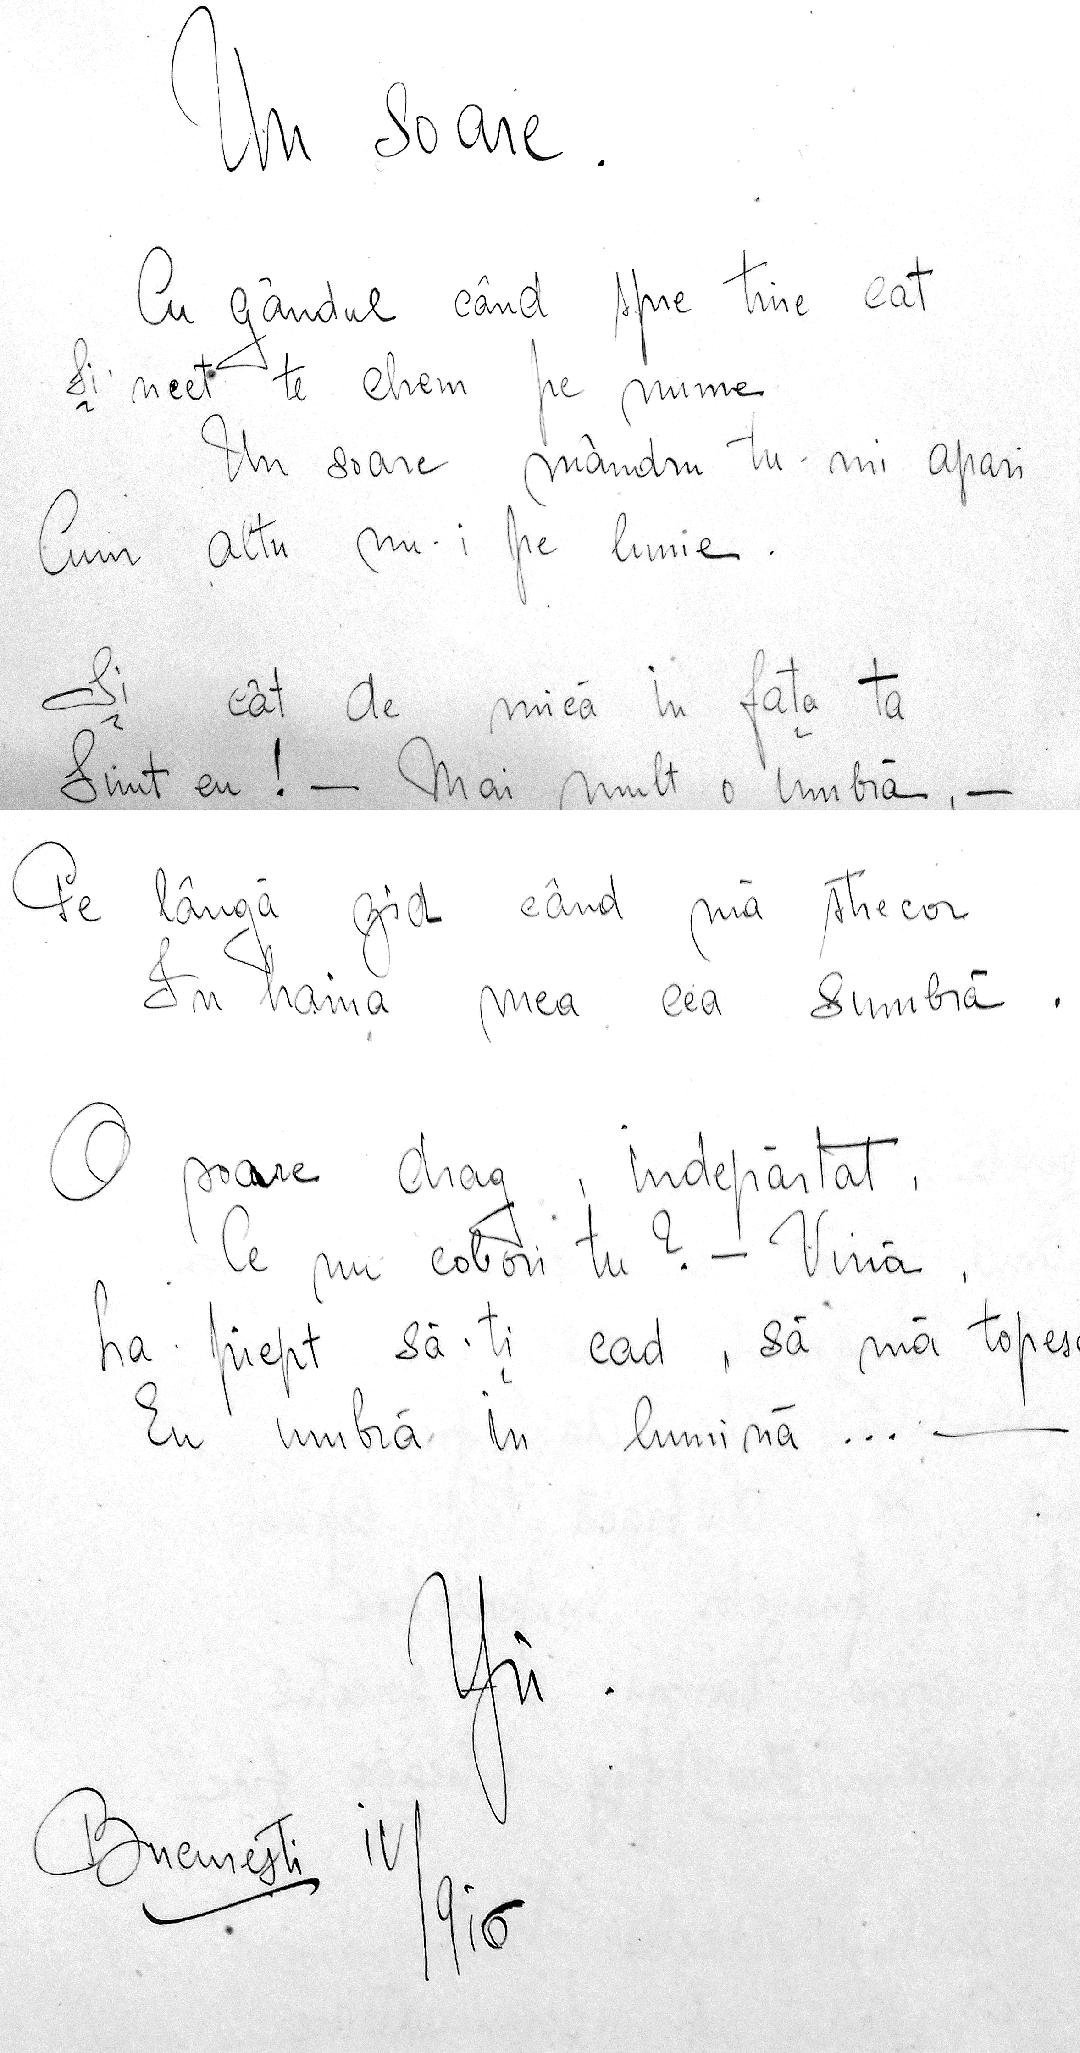 Un soare.
Cu gândul când spre tine cat
Și ncet te chem pe nume
Un soare mândru tu-mi apari
Cum altu nu-i pe lume.
Și cât de mică in fața ta
Sunt eu! — Mai mult o umbră, —
Pe lângă zid când mă strecor
In haina mea cea sumbră.
O soare drag, indepărtat,
Ce nu cobori tu? — Vină,
La piept să-ți cad, să mă topesc
Eu umbră in lumină... —
București IV/916